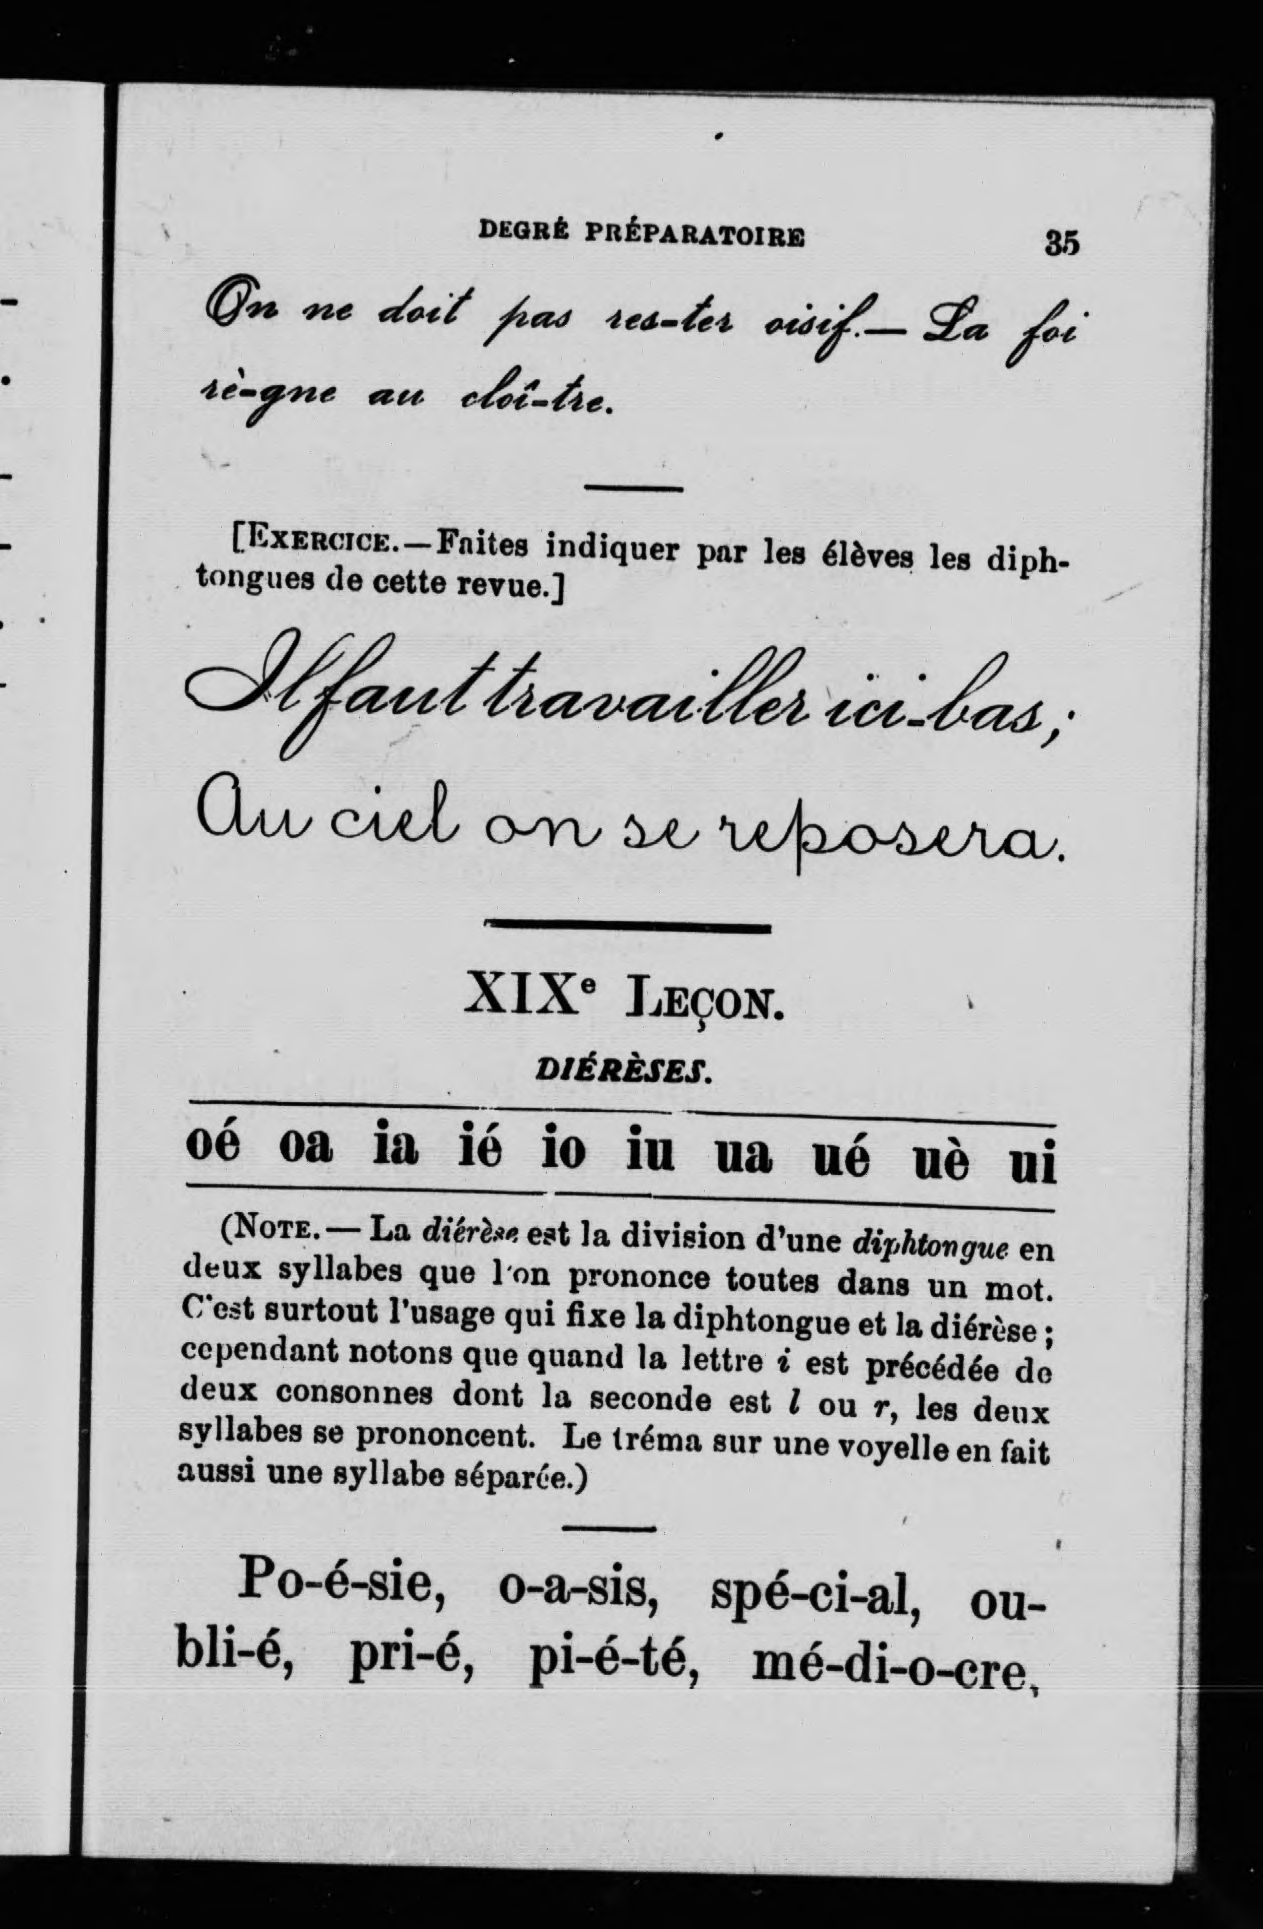 DEGRÉ PRÉPARATOIRE 35
On ne doit pas res-ter oisif.— La foi
rè-gne au cloî-tre.
[EXERCICE.—Faites indiquer par les élèves les diph-
tongues de cette revue.]
Il faut travailler ici-bas;
Au ciel on se reposera.
XIXe LEÇON.
DIÉRÈSES.
oé oa ia ié io iu ua ué uè ui
(NOTE.— La diérèse est la division d'une diphtongue en
deux syllabes que l'on prononce toutes dans un mot.
C'est surtout l'usage qui fixe la diphtongue et la diérèse ;
cependant notons que quand la lettre i est précédée de
deux consonnes dont la seconde est l ou r, les deux
syllabes se prononcent. Le tréma sur une voyelle en fait
aussi une syllabe séparée.)
Po-é-sie, o-a-sis, spé-ci-al, ou-
bli-é, pri-é, pi-é-té, mé-di-o-cre,